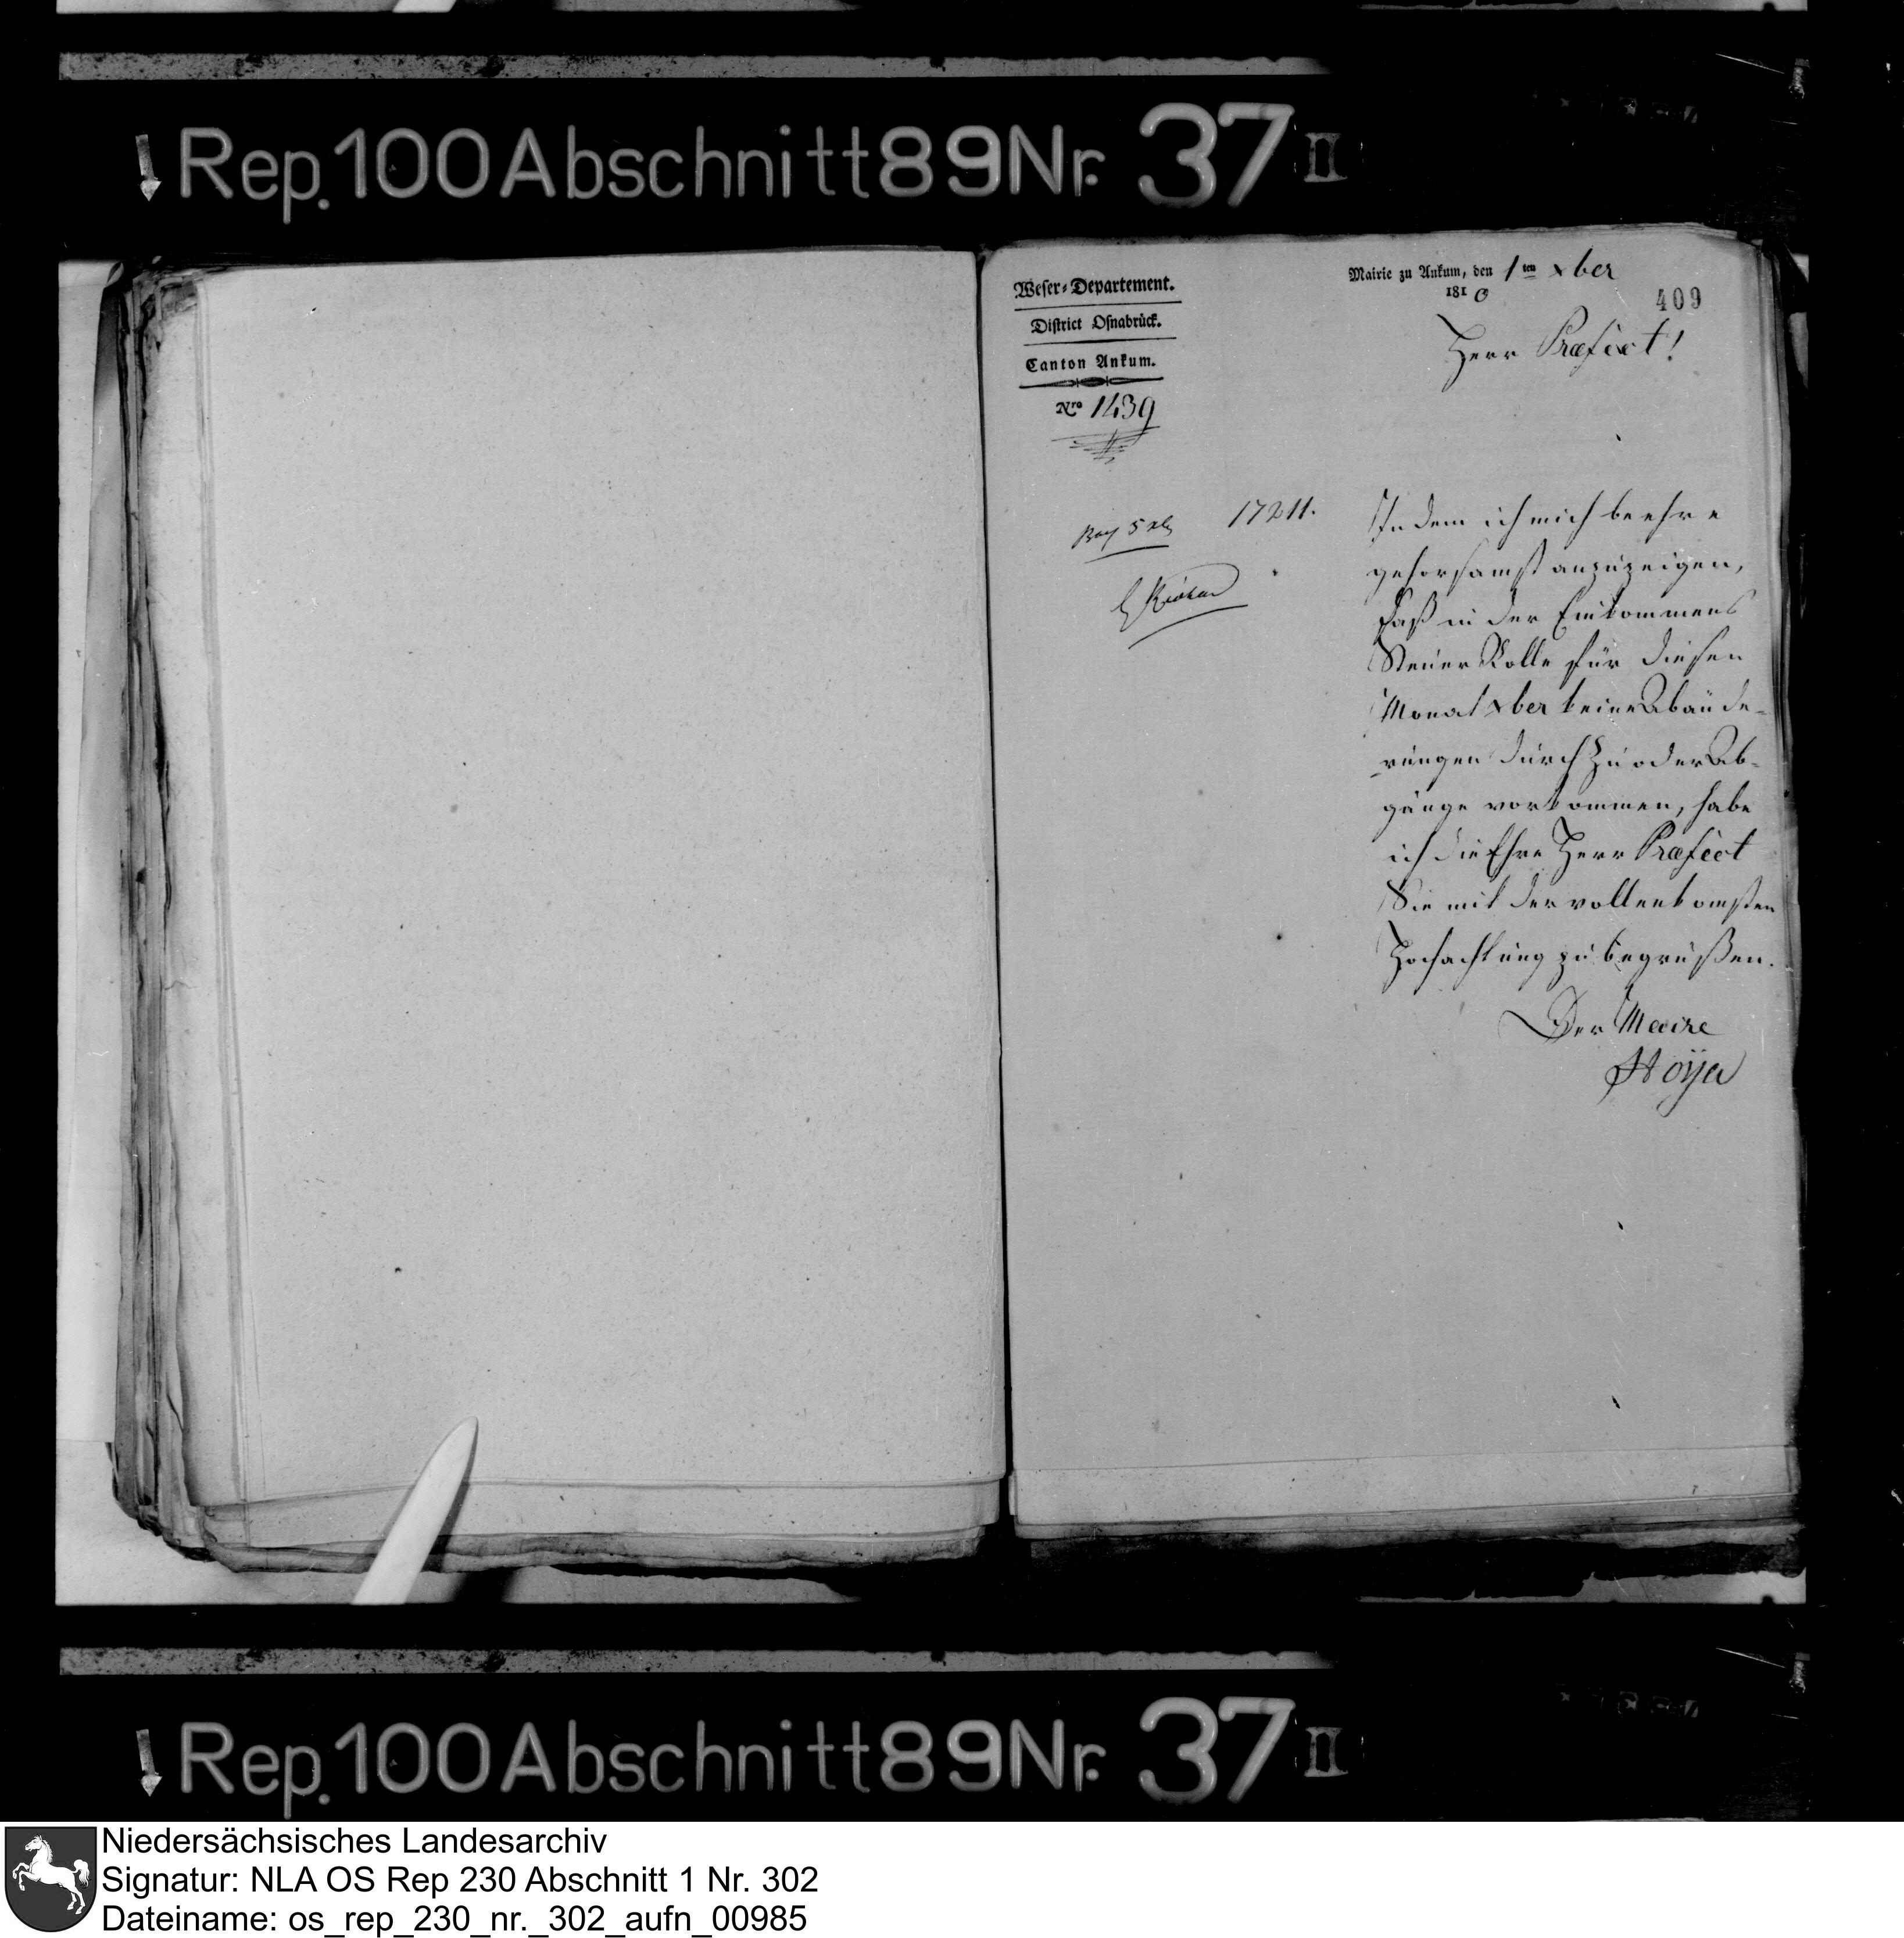 Rep. 100 Abschnitt 89 Nr. 37 II
Weser-Departement.
District Osnabrück.
Canton Ankum.
Nro 1439
Mairie zu Ankum, den 1ten xber
1810
409
Herr Præfect!
17211.
Indem ich mich beehre
gehorsamst anzuzeigen,
daß in der Einkommens
Steuer Rolle für diesen
Monat xber keine Abände-
rungen durch Zu oder Ab-
gänge vorkommen, habe
ich die Ehre Herr Præfect
Sie mit der vollenkomsten
Hochachtung zu begrüßen.
Der Maire
Rep. 100 Abschnitt 89 Nr. 37 II
Niedersächsisches Landesarchiv
Signatur: NLA OS Rep 230 Abschnitt 1 Nr. 302
Dateiname: os_rep_230_nr._302_aufn_00985